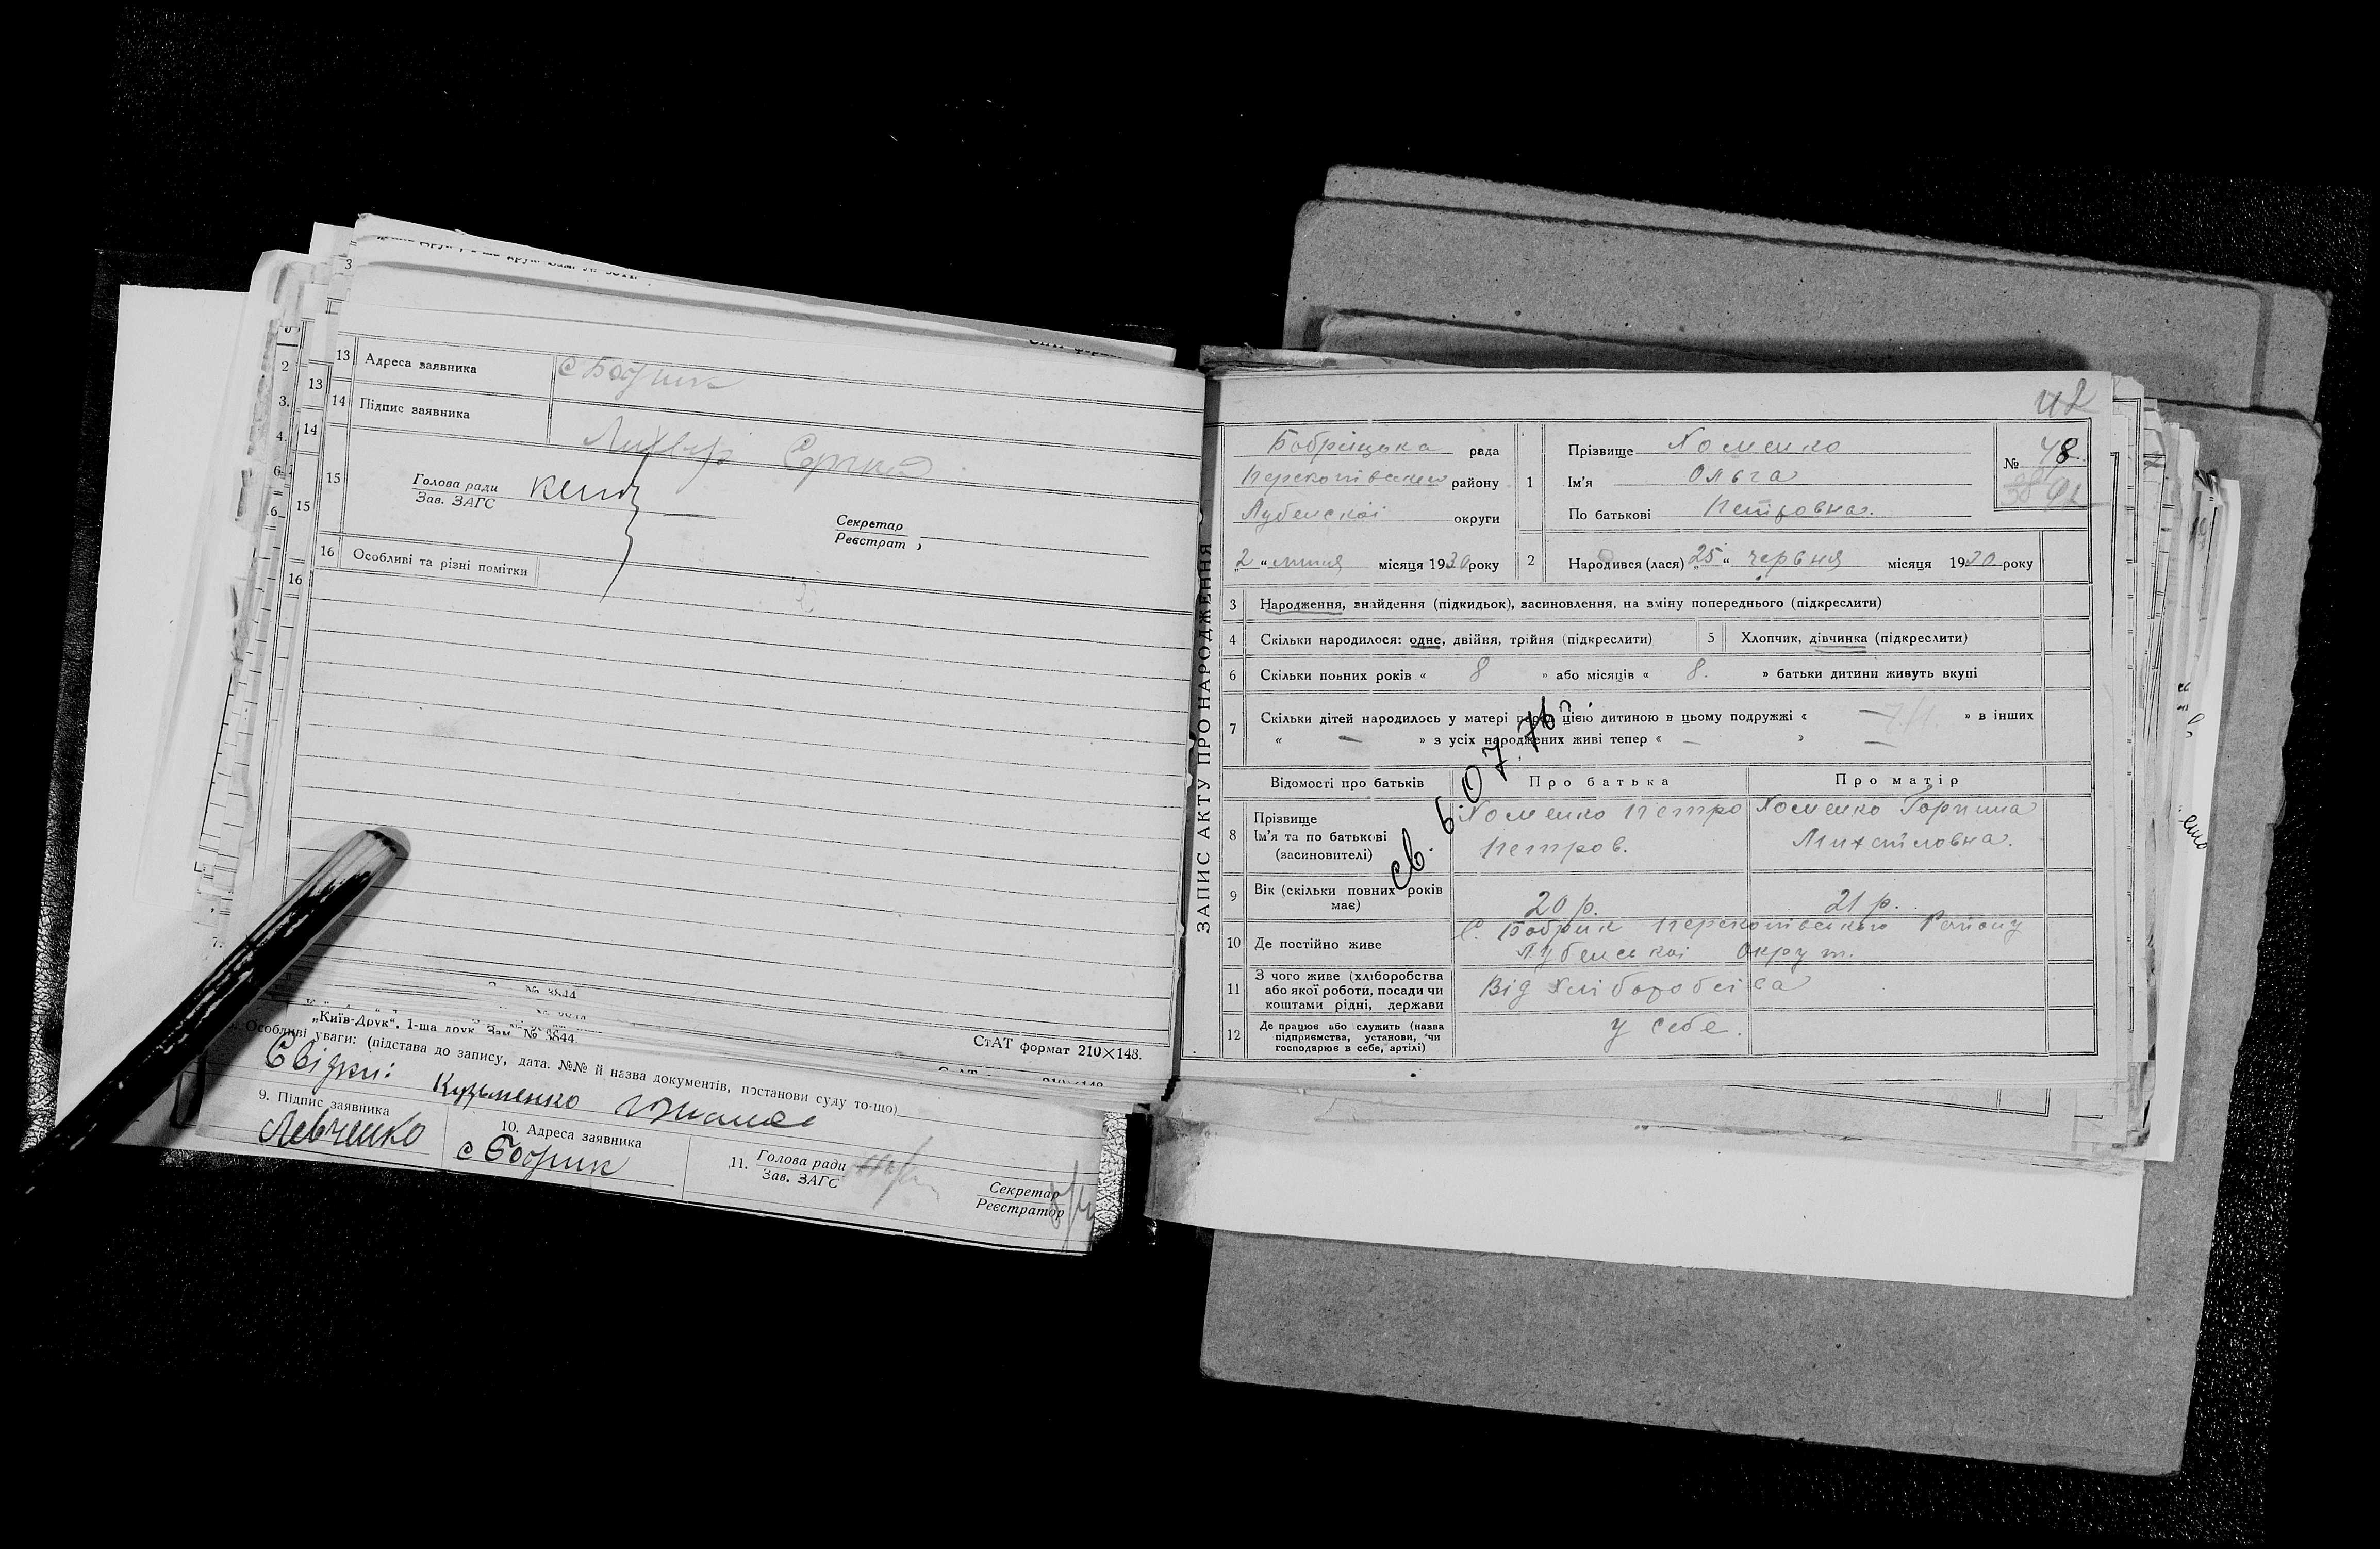 13 Адреса заявника с Бобрик
14 Підпис заявника
15 Голова ради
Зав. ЗАГС
Секретар
Реєстрат
16 Особливі та різні помітки
„Київ-Друк", 1-ша друк. Зам. № 3844.
СтАТ формат 210×148.
Особливі уваги: (підстава до запису, дата. №№ й назва документів, постанови суду то-що)
Свідки: Кузьменко
9. Підпис заявника
Левченко
10. Адреса заявника
с Бобрик
11. Голова ради
Зав. ЗАГС
Секретар
Реєстратор
ЗАПИС АКТУ ПРО НАРОДЖЕННЯ
42
Бобрицька рада
Перекопівського району
Лубенскої округи
„2" липня місяця 1930 року
1 Прізвище Хоменко
Ім'я Ольга
По батькові Петровна.
№ 48
2 Народився (лася) „25" червня місяця 1930 року
3 Народження, знайдення (підкидьок), засиновлення, на зміну попереднього (підкреслити)
4 Скільки народилося: одне, двійня, трійня (підкреслити)
5 Хлопчик, дівчинка (підкреслити)
6 Скільки повних років « 8 » або місяців « 8. » батьки дитини живуть вкупі
7 Скільки дітей народилось у матері перед цією дитиною в цьому подружжі « — » в інших
« — » з усіх народжених живі тепер « — »
св. 6.07.76
Відомості про батьків Про батька Про матір
8 Прізвище
Ім'я та по батькові
(засиновителі)
Хоменко Петро
Петров.
Хоменко Горпина
Михайловна.
9 Вік (скільки повних років
має)
20 р. 21 р.
10 Де постійно живе
С. Бобрик Перекопівського Району
Лубенської Округи.
11 З чого живе (хліборобства
або якої роботи, посади чи
коштами рідні, держави
Від Хліборобства
12 Де працює або служить (назва
підприємства, установи, чи
господарює в себе, артілі)
у себе.